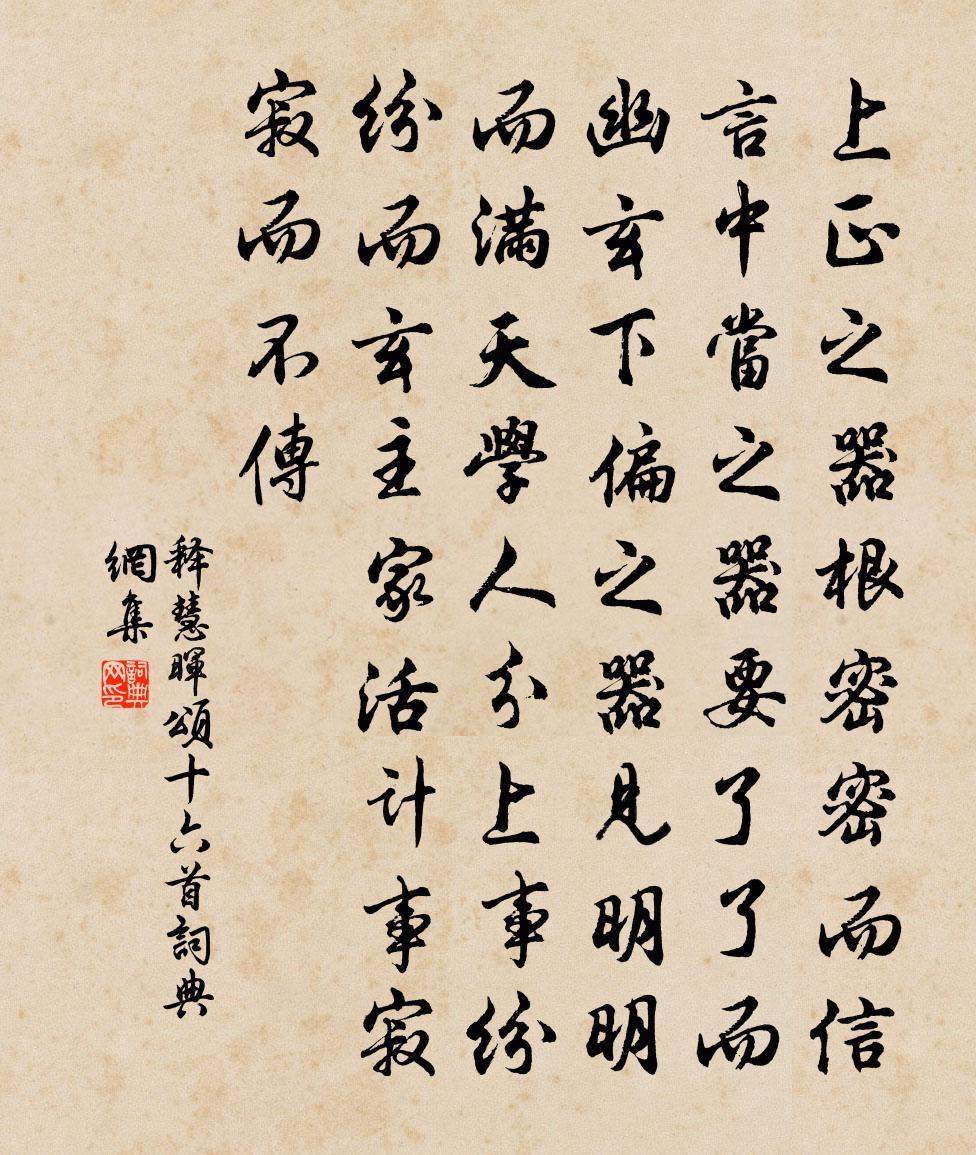 上正之器根密密而信
言中當之器要了了而
幽玄下偏之器見明明
而滿天學人分上事紛
紛而玄主家活计事寂
寂而不傳
释慧暉頌十六首詞典
網集
詞典
网印